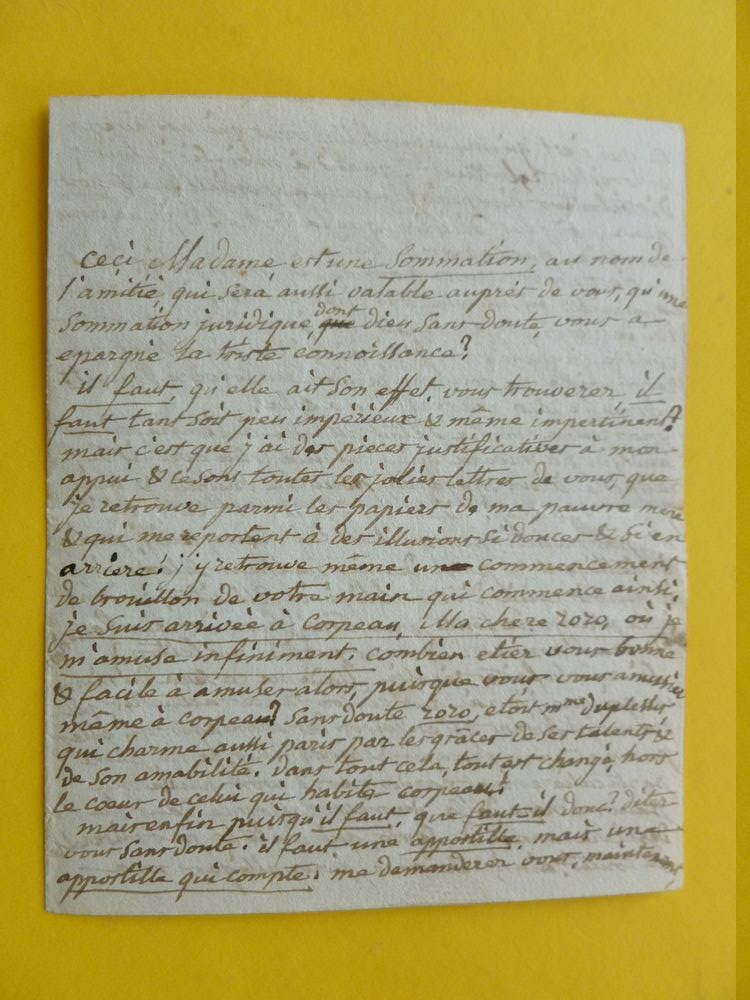 ceci Madame est une Sommation, au nom de
l'amitié, qui sera aussi valable auprès de vous, qu'une
Sommation juridique dont que dieu sans doute, vous a
epargné la triste connoissance?
il faut, qu'elle ait son effet. vous trouverez, il
faut tant soit peu impérieux & même impertinent?
mais c'est que j'ai des pieces justificatives à mon
appui & ce sont toutes les jolies lettres de vous, que
je retrouve parmi les papiers de ma pauvre mere
& qui me reportent à des illusions si douces & si en
arriere! j'y retrouve même un commencement
de brouillon de votre main qui commence ainsi.
je suis arrivée à Corpeau, Ma chere zozo, où je
m'amuse infiniment. combien etiez vous bonne
& facile à amuser alors, puisque vous vous amusiez
même à corpeau? Sans doute zozo, etoit mme duplessis
qui charme aussi paris par les grâces de ses talents &
de son amabilité. dans tout cela, tout est changé, hors
le coeur de celui qui habite corpeau!
mais enfin puisqu'il faut, que faut-il donc? direz
vous sans doute. il faut une appostille, mais une
appostille qui compte. me demanderez vous, maintenant,